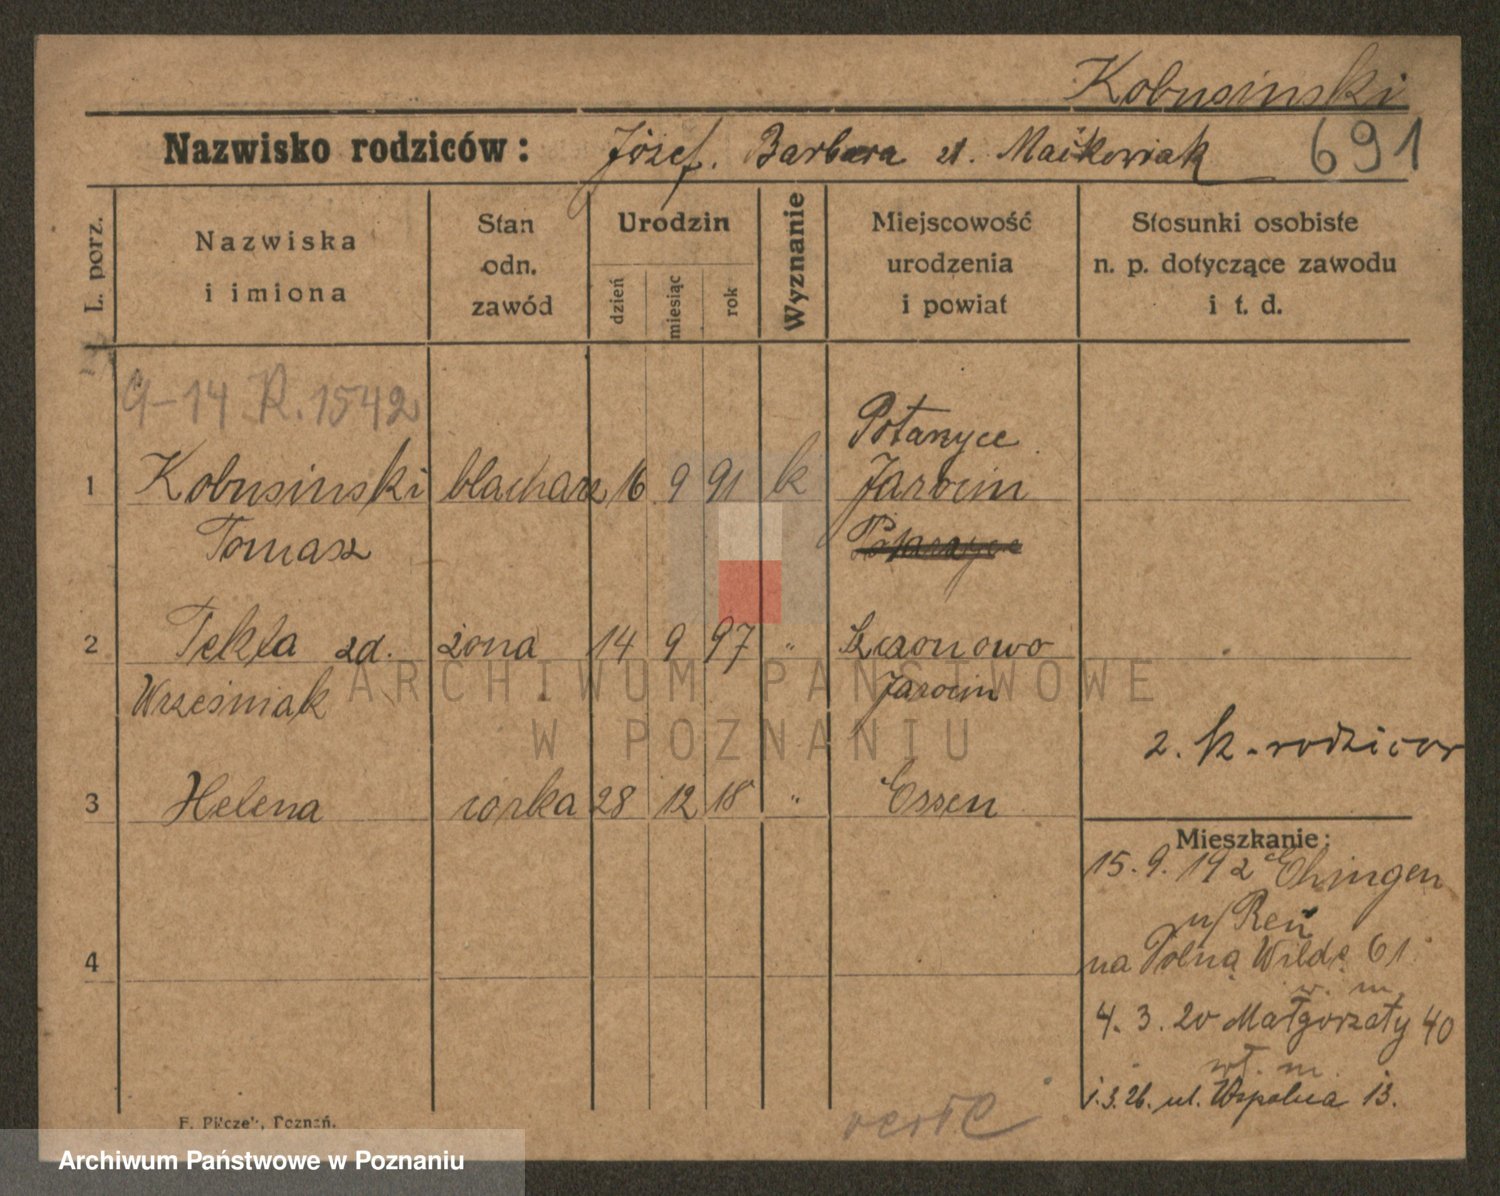 Kobusinski
Nazwisko rodziców: Józef. Barbara z. Maćkowiak 691
L. porz.
Nazwiska i imiona
Stan odn. zawód
Urodzin
dzień miesiąc rok
Wyznanie
Miejscowość urodzenia i powiat
Stosunki osobiste n. p. dotyczące zawodu i t. d.
G-14 R. 1542
Potarzyce
1 Kobusinski blacharz 16 9 91 k Jarocin
Tomasz
2 Tekla zd. żona 14 9 97 " Szczonowo
Wrześniak Jarocin
z. k. rodziców
3 Helena corka 28 12 18 " Essen
Mieszkanie:
15. 9. 192 Ehingen
n/Ren
na Polną Wildę 61
4
w. m.
4. 3. 20 Małgorzaty 40
wł. m.
1.3.26. ul. Wspólna 13.
F. Pilczek, Poznań.
ARCHIWUM PAŃSTWOWE
W POZNANIU
Archiwum Państwowe w Poznaniu